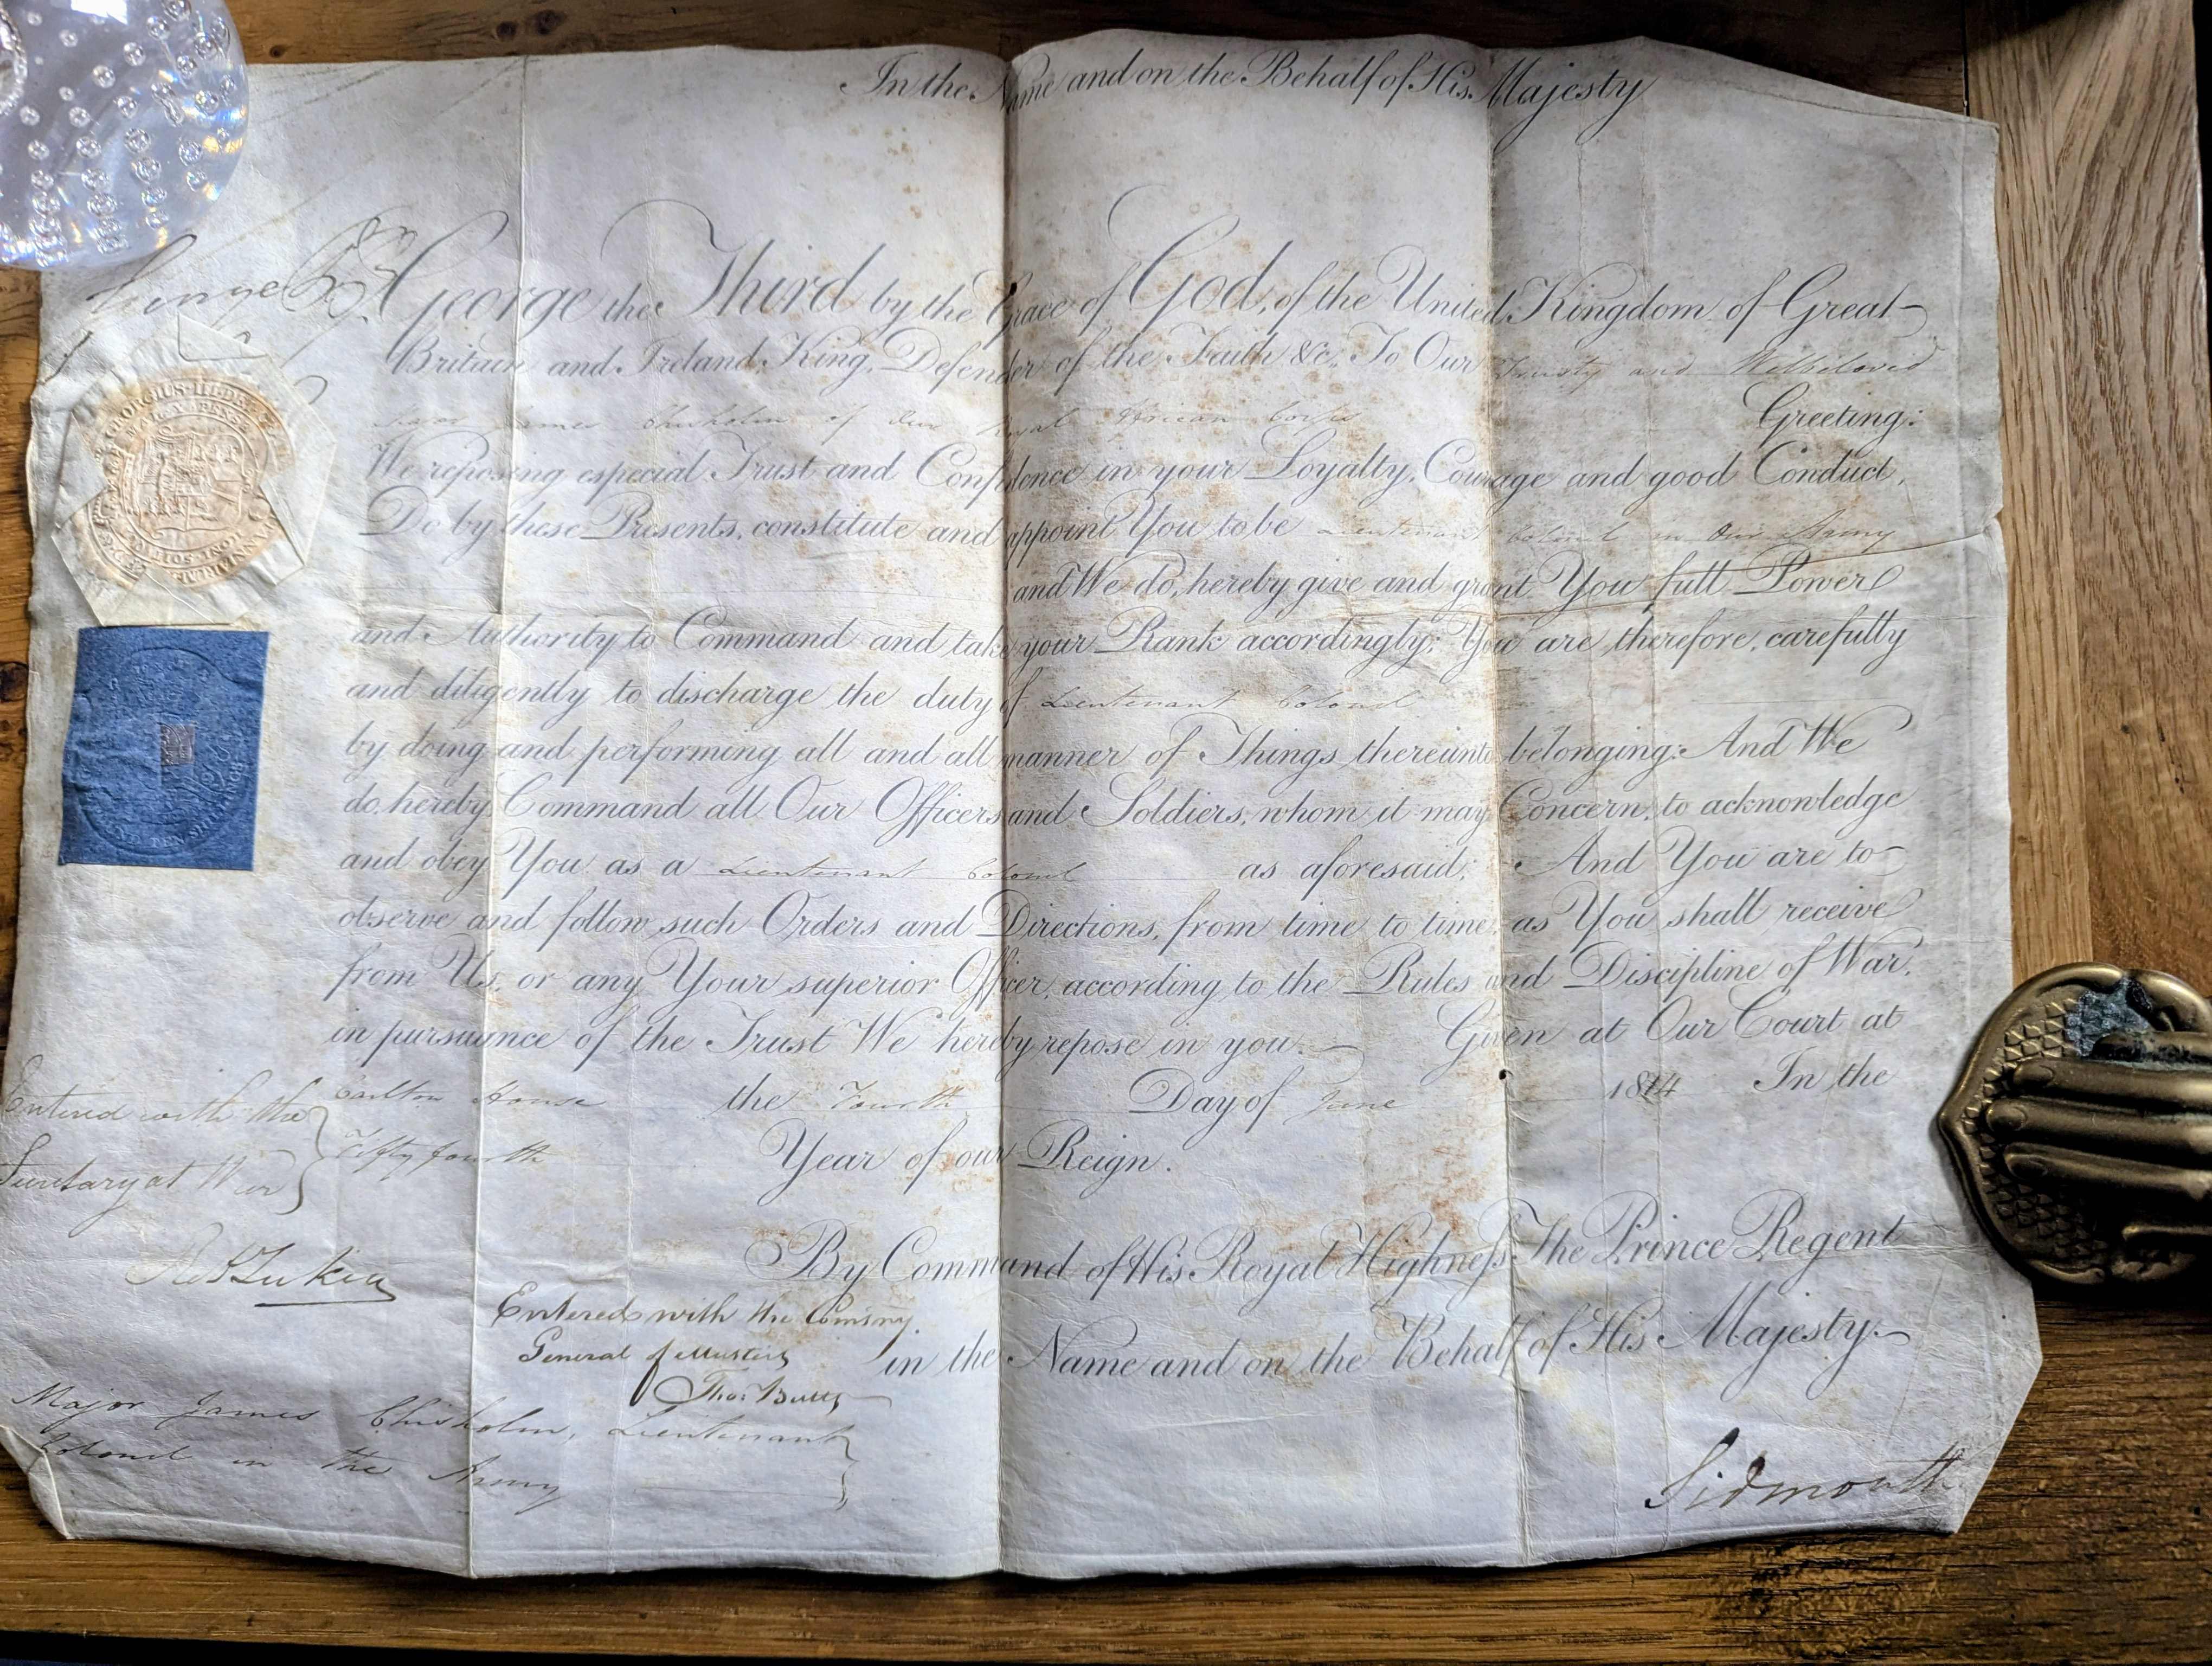 In the Name and on the Behalf of His Majesty
George P R
George the Third by the Grace of God, of the United Kingdom of Great
Britain and Ireland King, Defender of the Faith &c. To Our Trusty and Welbeloved
Major James Chisholm of Our Royal African Corps Greeting:
We reposing especial Trust and Confidence in your Loyalty, Courage and good Conduct,
Do by these Presents, constitute and appoint You to be Lieutenant Colonel in Our Army
and We do, hereby give and grant You full Power
and Authority to Command and take your Rank accordingly: You are therefore, carefully
and diligently to discharge the duty of Lieutenant Colonel
by doing and performing all and all manner of Things thereunto belonging: And We
do hereby Command all Our Officers and Soldiers, whom it may Concern, to acknowledge
and obey You as a Lieutenant Colonel as aforesaid: And You are to
observe and follow such Orders and Directions, from time to time, as You shall receive
from Us, or any Your superior Officer, according to the Rules and Discipline of War,
in pursuance of the Trust We hereby repose in you. Given at Our Court at
Carlton House the Fourth Day of June 1814 In the
Fifty fourth Year of our Reign.
Entered with the
Secretary at War
By Command of His Royal Highness The Prince Regent
in the Name and on the Behalf of His Majesty.
Entered with the Comsry.
General of Musters
Thos. Butts
Major James Chisholm, Lieutenant
Colonel in the Army
Sidmouth